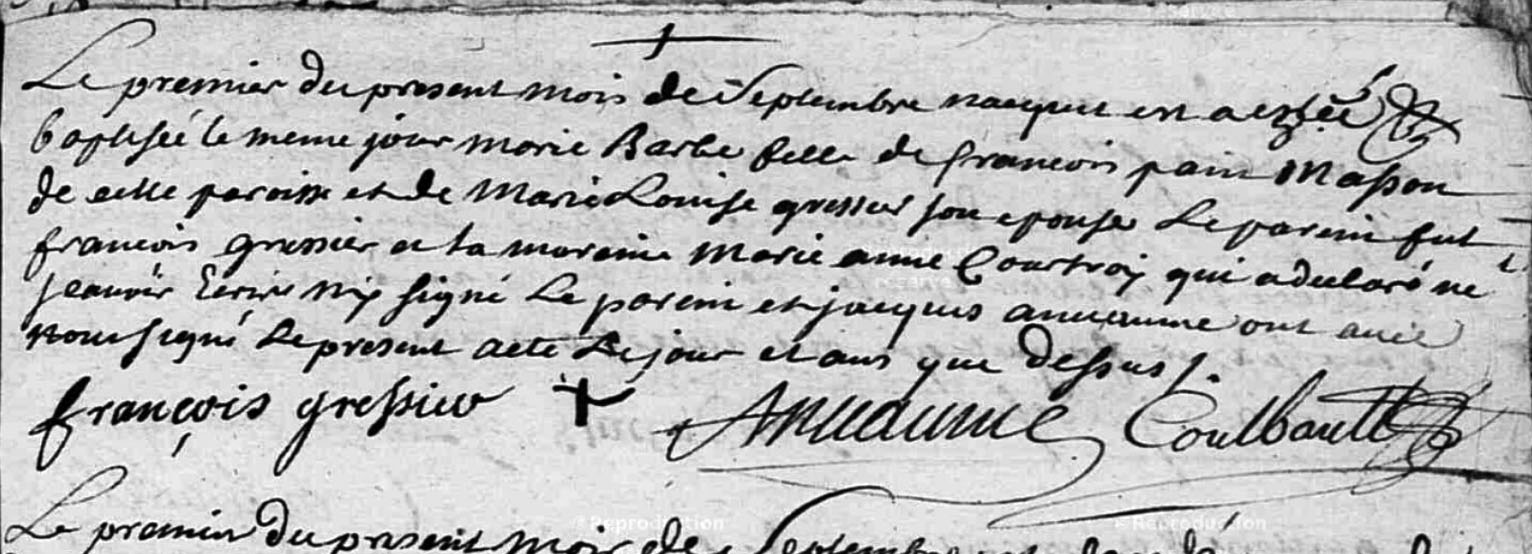 Le premier du present mois de Septembre nacquit et a esté
baptisée le meme jour marie Barbe fille de francois pain Masson
de cette paroisse et de Marie Louise gressier son epouse Le parein fut
francois gressier et la mareine Marie anne Courtroy qui a declaré ne
scavoir Ecrire ny signé Le parein et jacques ont avec
nous signé Le present acte Le jour et ans que dessus /.
françois gressier + Coulbault
Le premier Du present Mois de Septembre
© Reproduction © Reproduction